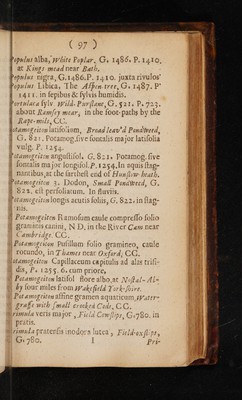 ( 97 )
Populus alba, White Poplar, G. 1486. P. 1410.
at Kings mead near Bath.
Populus nigra, G.1486.P. 1410. juxta rivulos'
Populus Libica, The Aspen tree, G. 1487. P'
1411. in sepibus & sylvis humidis.
Portulaca sylv. Wild-Purslane, G. 521. P. 723.
about Ramsey mear, in the foot-paths by the
Rape-mils, CC.
Potamogeiton latifolium, Broad leav'd Pondweed,
G. 821. Potamog.sive fontalis major latifolia
vulg. P. 1254.
Potamogeiton angustifol. G. 821. Potamog. sive
fontalis major longifol. P. 1254. In aquis stag-
nantibus, at the farthest end of Hunslow heath.
Potamogeiton 3. Dodon, Small Pondweed, G.
822. est perfoliatum. In fluviis.
Potamogeiton longis acutis foliis, G. 822. in stag-
nis.
Potamogeiton Ramosum caule compresso folio
graminis canini, N D, in the River Cam near
Cambridge. CC.
Potamogeiton Pusillum folio gramineo, caule
rotundo, in Thames near Oxford, CC.
Potamogeiton Capillaceum capitulis ad alas trifi-
dis, P. 1255. 6. cum priore.
Potamogeiton latifol flore albo, at Nostal-Ab-
by four miles from Wakefield York-shire.
Potamogeiton affine gramen aquaticum, Water-
grass with small crooked Cods, CC.
Primula veris major, Field Cowslips, G.780. in
pratis.
Primula pratensis inodora lutea, Field-oxslips,
G. 780. I Pri-